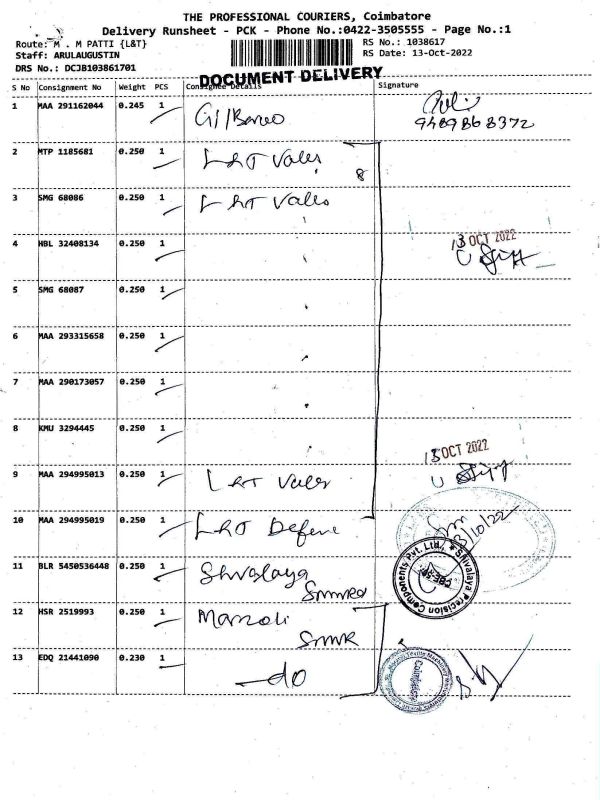 THE PROFESSIONAL COURIERS, Coimbatore
Delivery Runsheet - PCK - Phone No.:0422-3505555 - Page No.:1
Route: M . M PATTI {L&T} RS No.: 1038617
Staff: ARULAUGUSTIN RS Date: 13-Oct-2022
DRS No.: DCJB103861701
DOCUMENT DELIVERY
S No Consignment No Weight PCS Consignee Details Signature
1 MAA 291162044 0.245 1
9489868372
2 MTP 1185681 0.250 1 L&T Vales
8
3 SMG 68086 0.250 1 L&T Vales
4 HBL 32408134 0.250 1
13 OCT 2022
5 SMG 68087 0.250 1
6 MAA 293315658 0.250 1
7 MAA 290173057 0.250 1
8 KMU 3294445 0.250 1
13 OCT 2022
9 MAA 294995013 0.250 1 L&T Vales
10 MAA 294995019 0.250 1 L&T Defene
13/10/22
11 BLR 5450536448 0.250 1 Shivalaya
Shivalaya Precision Components Pvt. Ltd.,
12 HSR 2519993 0.250 1 Marzoli
13 EDQ 21441090 0.230 1 do
Coimbatore